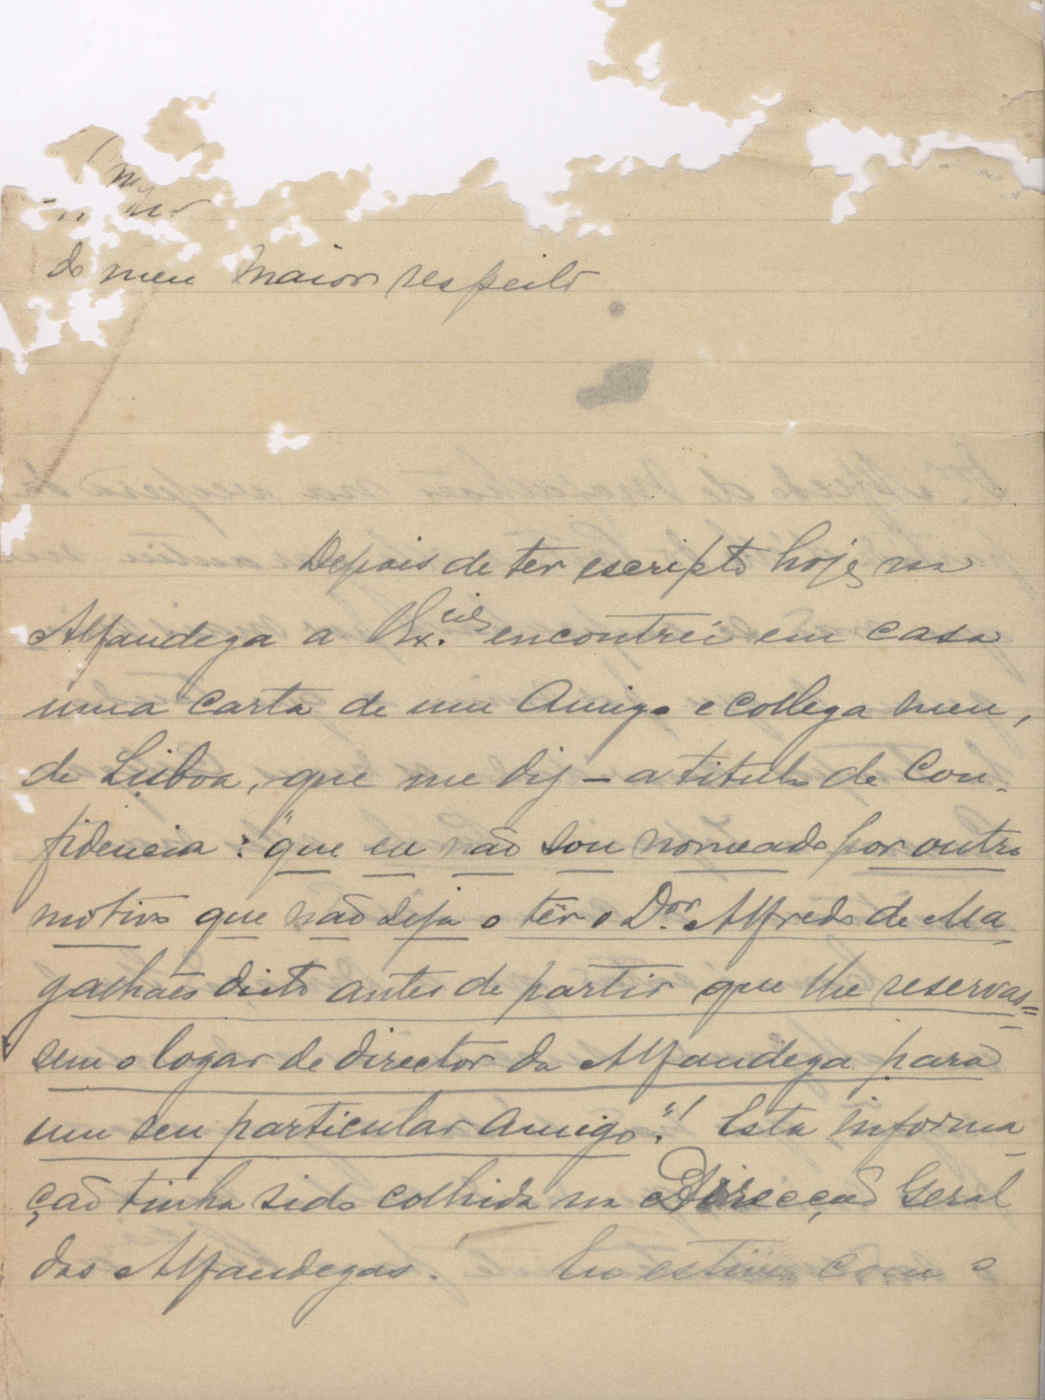 do meu maior respeito
Depois de ter escripto hoje na
Alfandega a V. Ex.cia encontrei em casa
uma carta de um Amigo e collega meu,
de Lisboa, que me diz – a titulo de Con-
fidencia: "que eu não sou nomeado por outro
motivo que não seja o ter o Dor. Alfredo de Ma-
galhães dicto antes de partir que lhe reservas=
sem o logar de director da Alfandega para
um seu particular Amigo"! Esta informa-
ção tinha sido colhida na Direcção Geral
das Alfandegas! Eu estive com o